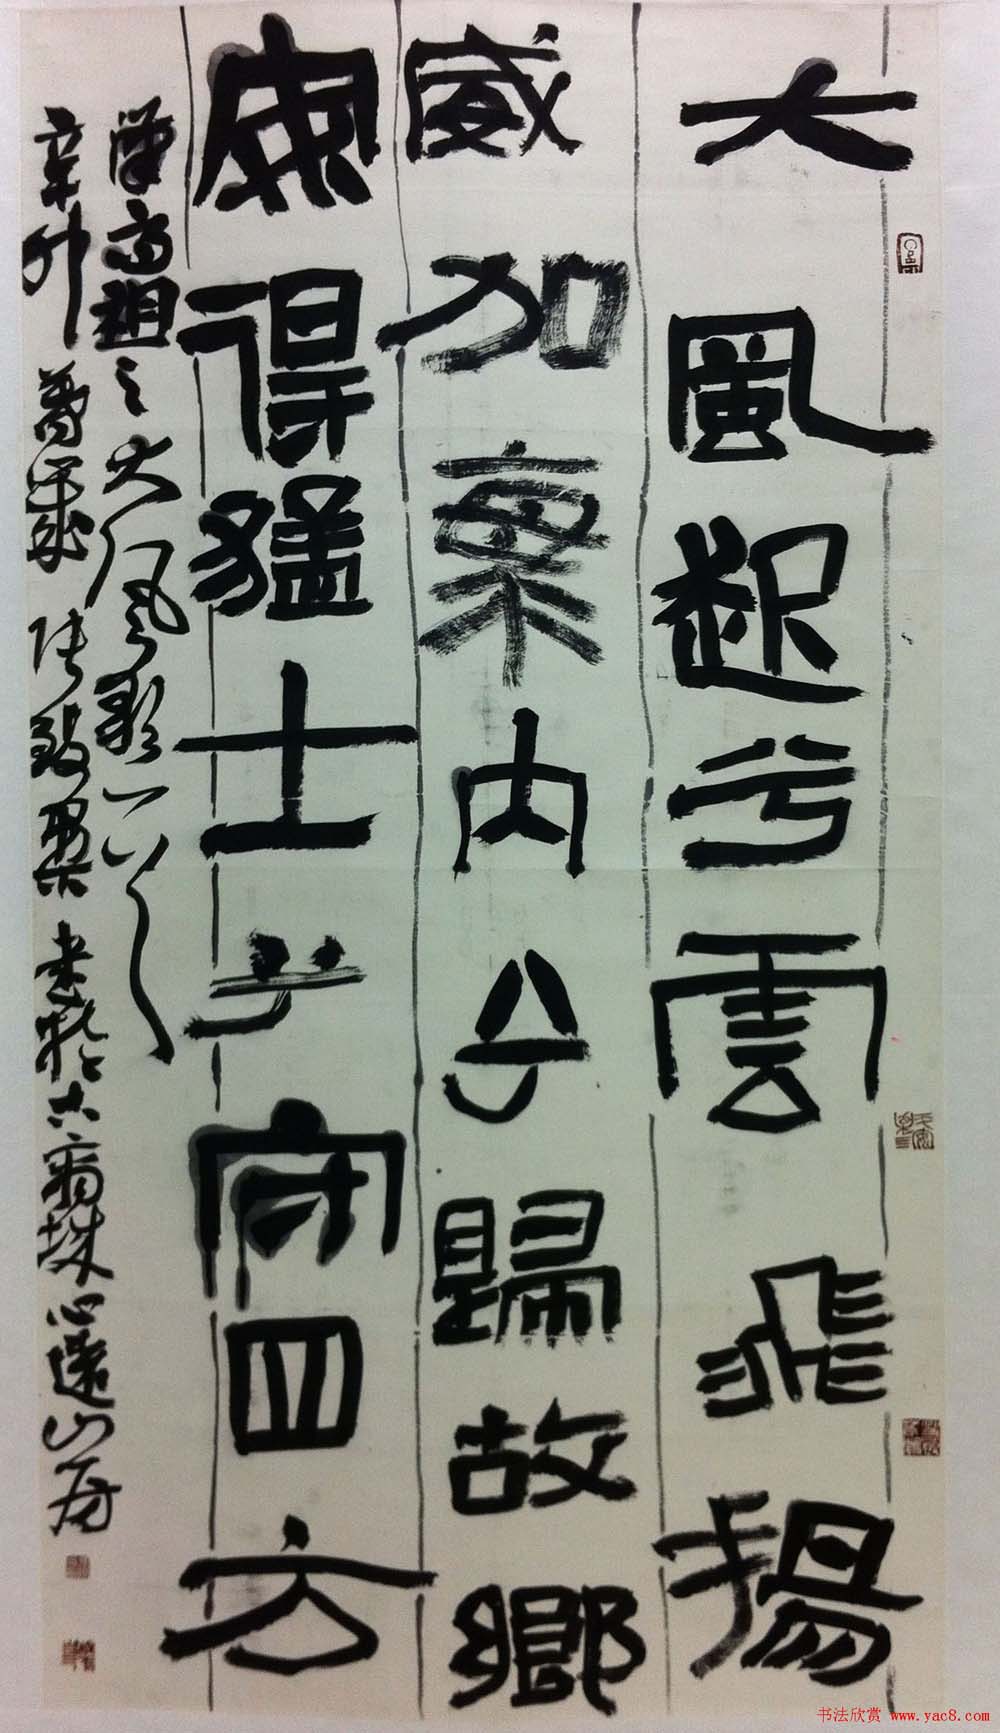 大風起兮雲飛揚
威加海内兮歸故鄉
安得猛士兮守四方
漢高祖之大風歌一首
辛卯 書於 心遠山房
书法欣赏 www.yac8.com